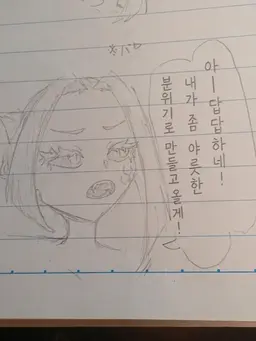 아ㅡ 답답하네!
내가 좀 야릇한
분위기로 만들고 올게!